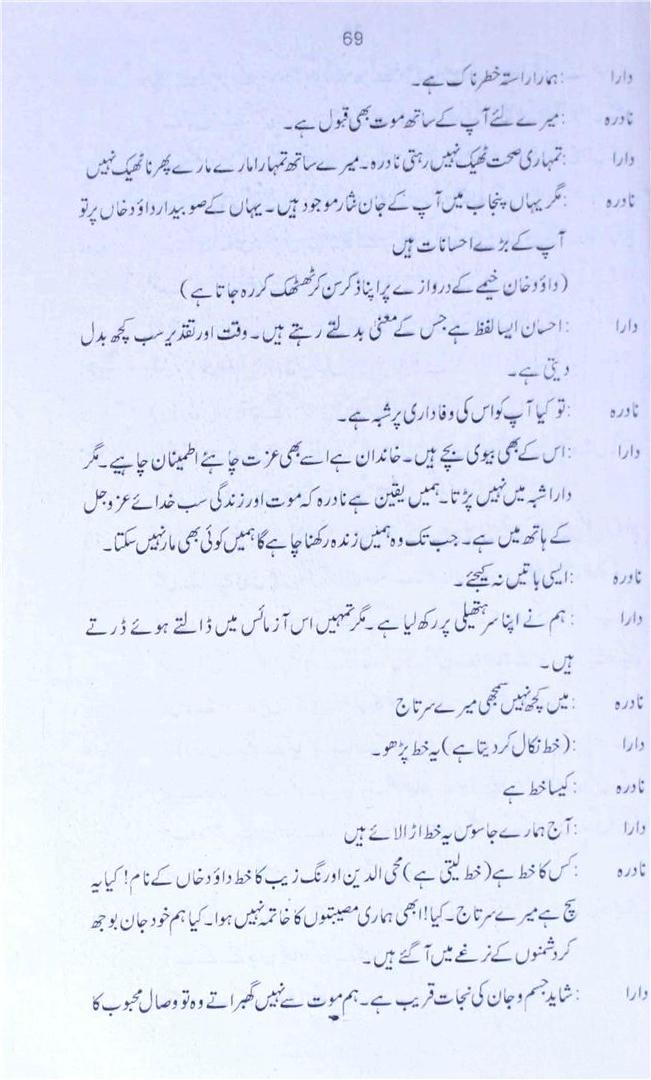 69
دارا :ہمارا راستہ خطرناک ہے۔
نادرہ :میرے لئے آپ کے ساتھ موت بھی قبول ہے۔
دارا :تمہاری صحت ٹھیک نہیں رہتی نادرہ۔ میرے ساتھ تمہارا مارے مارے پھرنا ٹھیک نہیں
نادرہ :مگر یہاں پنجاب میں آپ کے جان نثار موجود ہیں۔ یہاں کے صوبیدار داؤد خاں پر تو
آپ کے بڑے احسانات ہیں
(داؤد خان خیمے کے دروازے پر اپنا ذکر سن کر ٹھٹھک کر رہ جاتا ہے)
دارا :احسان ایسا لفظ ہے جس کے معنی بدلتے رہتے ہیں۔ وقت اور تقدیر سب کچھ بدل
دیتی ہے۔
نادرہ :تو کیا آپ کو اس کی وفاداری پر شبہ ہے۔
دارا :اس کے بھی بیوی بچے ہیں۔ خاندان ہے اسے بھی عزت چاہئے اطمینان چاہیے۔ مگر
دارا شبہ میں نہیں پڑتا۔ ہمیں یقین ہے نادرہ کہ موت اور زندگی سب خدائے عزوجل
کے ہاتھ میں ہے۔ جب تک وہ ہمیں زندہ رکھنا چاہے گا ہمیں کوئی بھی مار نہیں سکتا۔
نادرہ :ایسی باتیں نہ کیجئے۔
دارا :ہم نے اپنا سر ہتھیلی پر رکھ لیا ہے۔ مگر تمہیں اس آزمائس میں ڈالتے ہوئے ڈرتے
ہیں۔
نادرہ :میں کچھ نہیں سمجھی میرے سرتاج
دارا :(خط نکال کر دیتا ہے) یہ خط پڑھو۔
نادرہ :کیسا خط ہے
دارا :آج ہمارے جاسوس یہ خط اڑا لائے ہیں
نادرہ :کس کا خط ہے (خط لیتی ہے) محی الدین اورنگ زیب کا خط داؤد خاں کے نام! کیا یہ
سچ ہے میرے سرتاج۔ کیا! ابھی ہماری مصیبتوں کا خاتمہ نہیں ہوا۔ کیا ہم خود جان بوجھ
کر دشمنوں کے نرغے میں آ گئے ہیں۔
دارا :شاید جسم و جان کی نجات قریب ہے۔ ہم موت سے نہیں گھبراتے وہ تو وصال محبوب کا